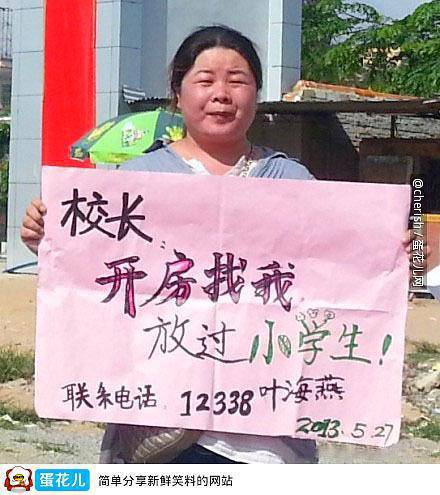 校长
开房找我
放过小学生!
联系电话 12338 叶海燕
2013.5.27
@cherish / 蛋花儿网
蛋花儿 简单分享新鲜笑料的网站